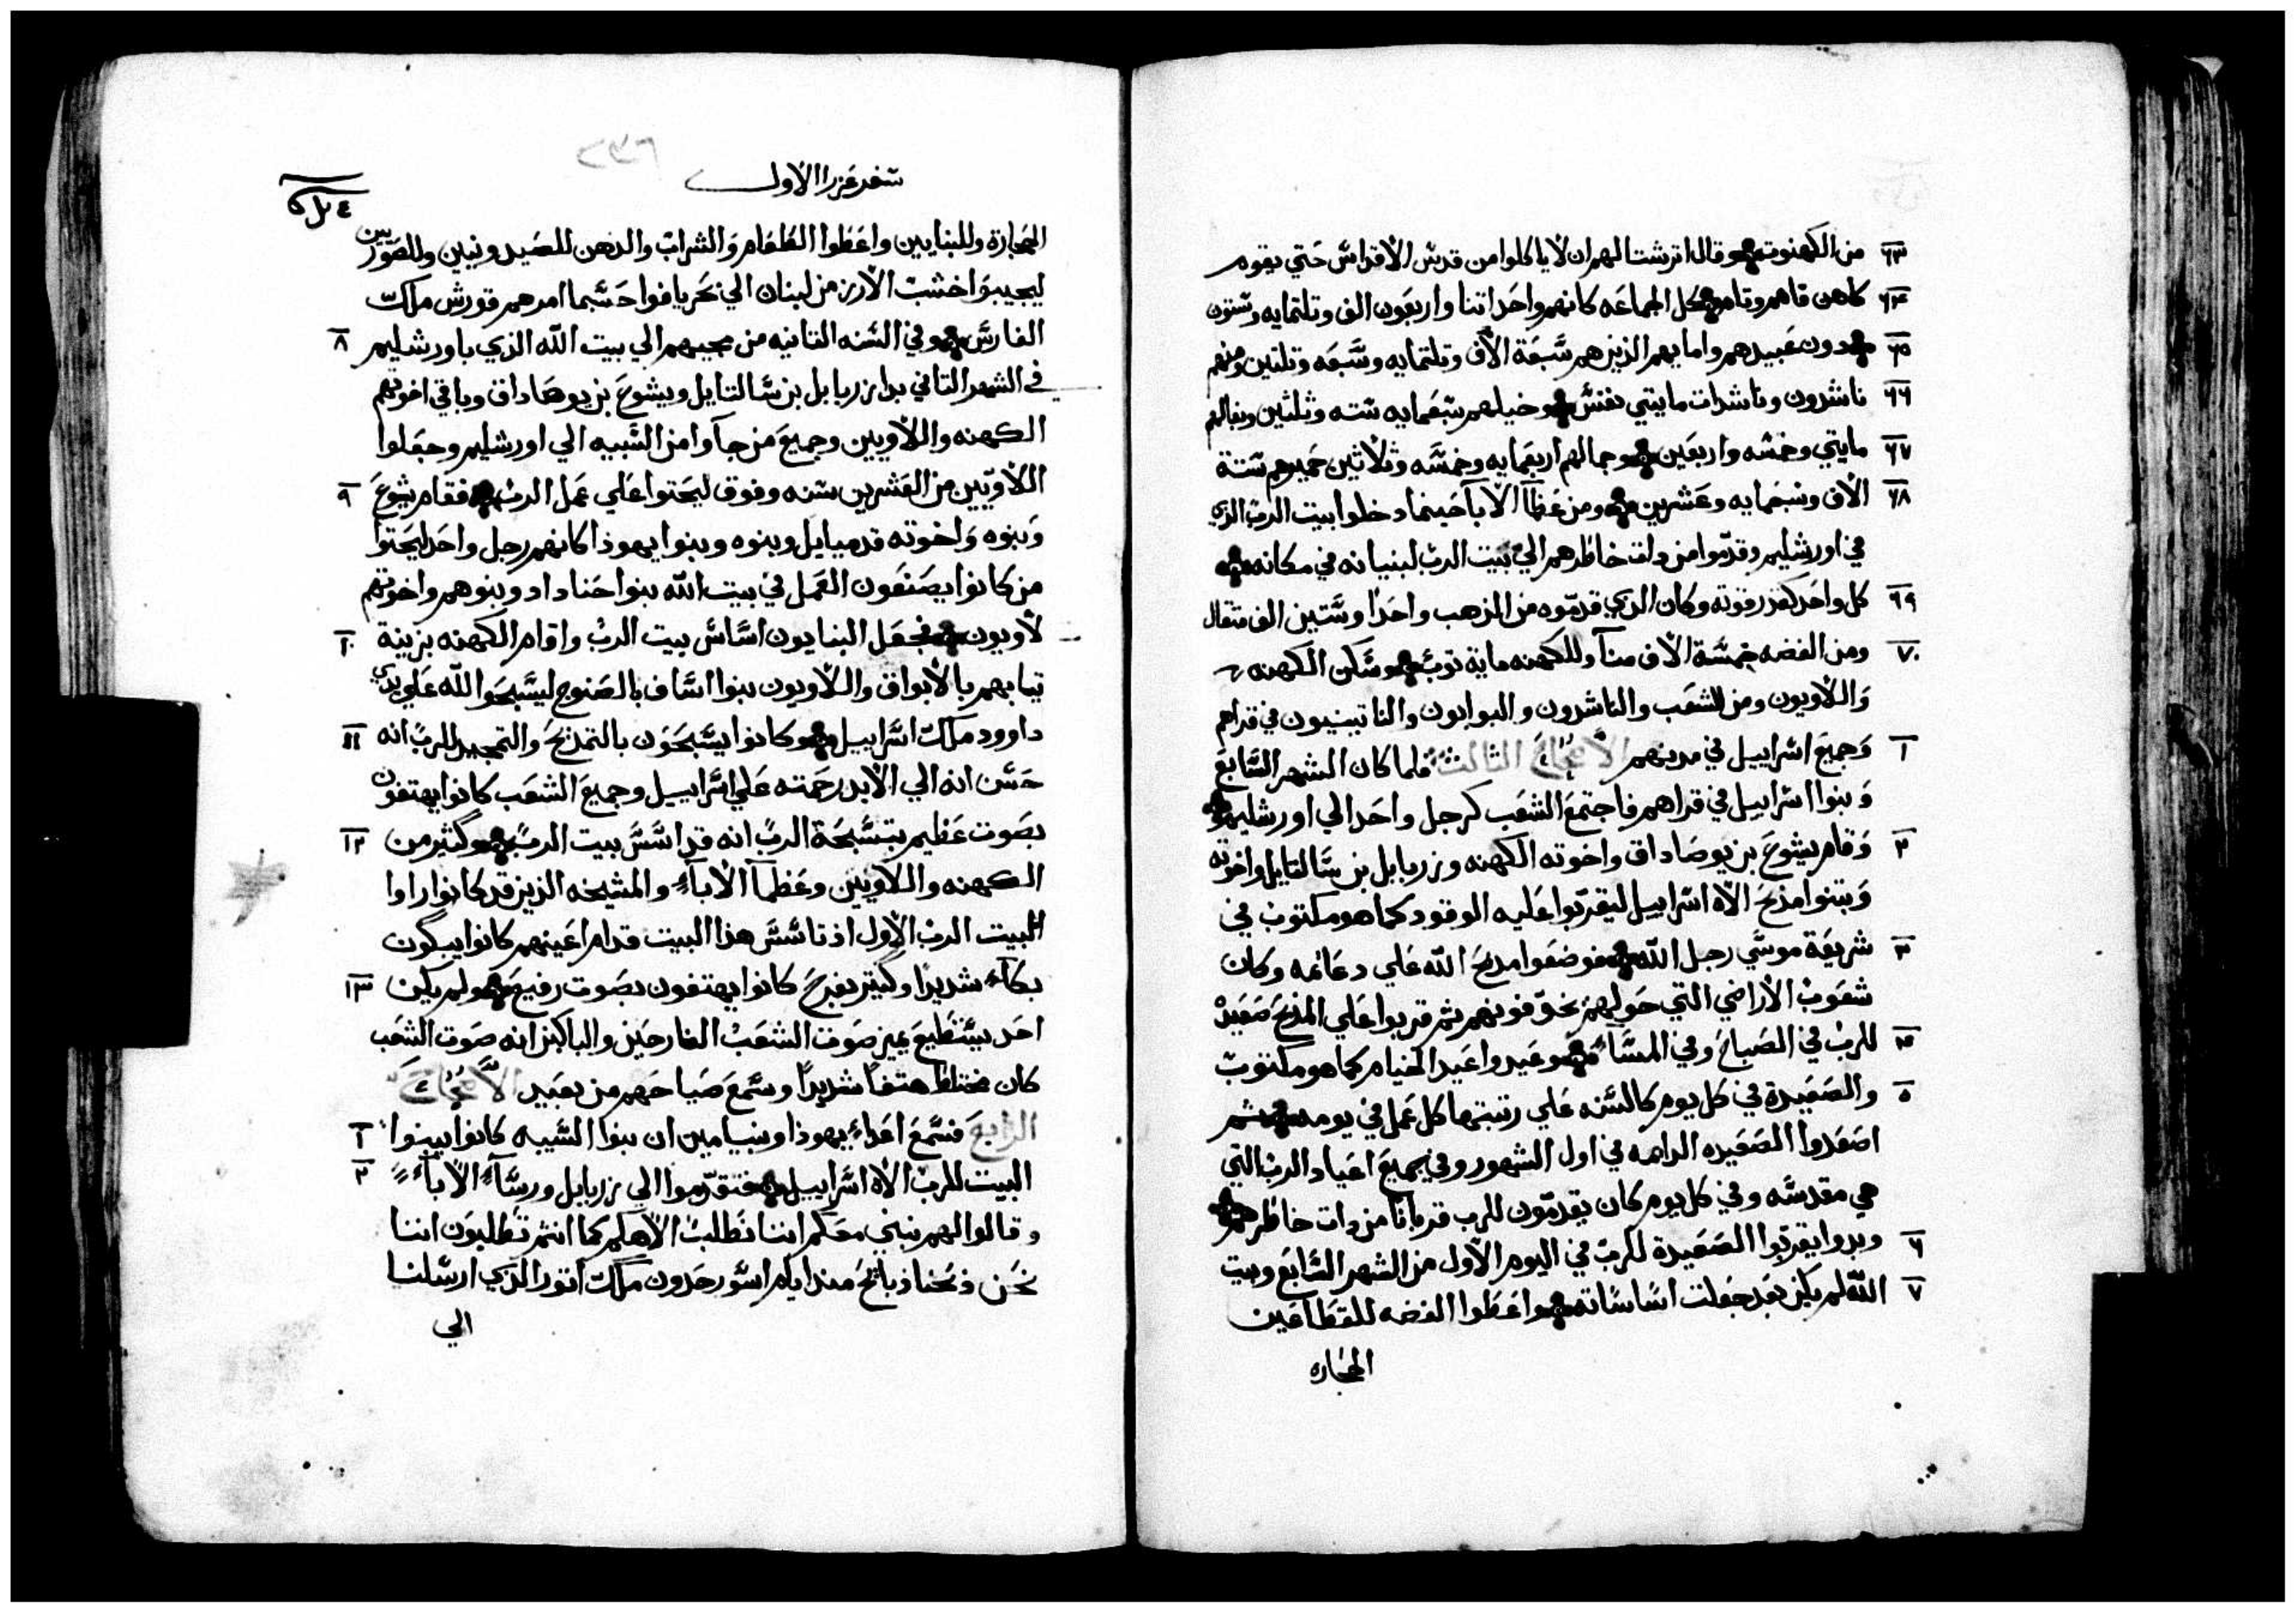 ٦٣ من الكهنوته وقال اترشتا لهم ان لا ياكلوا من قدس الاقداس حتي يقوم
٦٤ كاهن فاهم وتام كل الجماعه كانهم واحد اتنا واربعون الف وتلتمايه وستون
٦٥ دون عبيدهم وامايهم الذين هم سبعة الاف وتلتمايه وسبعه وتلتين ومنهم
٦٦ ناشدون وناشدات مايتي نفس وخيلهم سبعمايه سته وثلثين وبغالهم
٦٧ مايتي وخمسه واربعين وجمالهم اربعمايه وخمسه وثلاثين حميرهم ستة
٦٨ الاف وسبعمايه وعشرين ومن عظما الابا حينما دخلوا بيت الرب الذي
في اورشليم وقدموا من دات خاطرهم الي بيت الرب لبنيانه في مكانه
٦٩ كل واحد كقدر قوته وكان الذي قدموه من الذهب واحدا وستين الف متقال
٧٠ ومن الفضه خمسة الاف منا وللكهنه ماية توب وسكن الكهنه
واللاويون ومن الشعب والناشدون والبوابون والناتينيون في قراهم
١ وجميع اسراييل في مدينهم الاصحاح الثالث فلما كان الشهر السابع
وبنوا اسراييل في قراهم فاجتمع الشعب كرجل واحد الي اورشليم
٢ وقام يشوع بن يوصاداق واخوته الكهنه وزربابل بن سالتايل واخوته
وبتنوا مذبح الاه اسراييل ليقربوا عليه الوقود كما هو مكتوب في
٣ شريعة موسي رجل الله فوضعوا مذبح الله علي دعائمه وكان
شعوب الاراضي التي حولهم تخوفونهم ثم قربوا علي المذبح صعيدة
٤ للرب في الصباح وفي المساء وعيدوا عيد الخيام كما هو مكتوب
٥ والصعيدة في كل يوم كالسنه علي رتبتها كل عمل في يومه ثم
اصعدوا الصعيده الدامه في اول الشهور وفي جميع اعياد الرب التي
هي مقدسه وفي كل يوم كان يقدمون للرب قربانا من دات خاطرهم
٦ وبدوا يقربوا الصعيدة للرب في اليوم الاول من الشهر السابع وبيت
٧ الله لم يكن بعد جعلت اساساته واعطوا الفضه للقطاعين
الحجاره
٢٣٦
سفر عزرا الاول
الحجارة وللبنايين واعطوا الطعام والشراب والدهن للصيدونيين وللصوريين
ليجيبوا خشب الارز من لبنان الي بحر يافوا حسبما امرهم قورش ملك
٨ الفارس وفي السنه التانيه من مجيهم الي بيت الله الذي باورشليم
في الشهر التاني بدا زربابل بن سالتايل ويشوع بن يوصاداق وباقي اخوتهم
الكهنه واللاويين وجميع من جاوا من السبيه الي اورشليم وجعلوا
٩ اللاويين من العشرين سنه وفوق ليحتوا علي عمل الرب فقام يشوع
وبنوه واخوته قدميايل وبنوه وبنوا يهوذا كانهم رجل واحد ليحتوا
من كانوا يصنعون العمل في بيت الله بنوا حناداد وبنوهم واخوتهم
١٠ لاويون فجعل البنايون اساس بيت الرب واقام الكهنه بزينة
تيابهم بالابواق واللاويون بنوا اساف بالصنوج ليسبحوا الله علي يدي
١١ داوود ملك اسراييل وكانوا يسبحون بالتمديح والتمجيد للرب انه
حسن انه الي الابد رحمته علي اسراييل وجميع الشعب كانوا يهتفون
١٢ بصوت عظيم بتسبحة الرب انه قد اسس بيت الرب وكثير من
الكهنه واللاويين وعظما الاباء والمشيخه الذين قد كانوا راوا
البيت الرب الاول اذ تاسس هذا البيت قدام اعينهم كانوا يبكون
١٣ بكاء شديدا وكثير بفرح كانوا يهتفون بصوت رفيع ولم يكن
احد يستطيع يميز صوت الشعب الفارحين والباكين انه صوت الشعب
كان مختلط هتفا شديدا وسمع صياحهم من بعيد الاصحاح
١ الرابع فسمع اعداء يهوذا وبنيامين ان بنوا السبيه كانوا يبنوا
٢ البيت للرب الاه اسراييل فتقدموا الي زربابل ورساء الاباء
وقالوا لهم نبني معكم اننا نطلب الاهكم كما انتم تطلبون اننا
نحن ذبحنا ذبايح منذ ايام اسورحدون ملك اتور الذي ارسلنا
الي